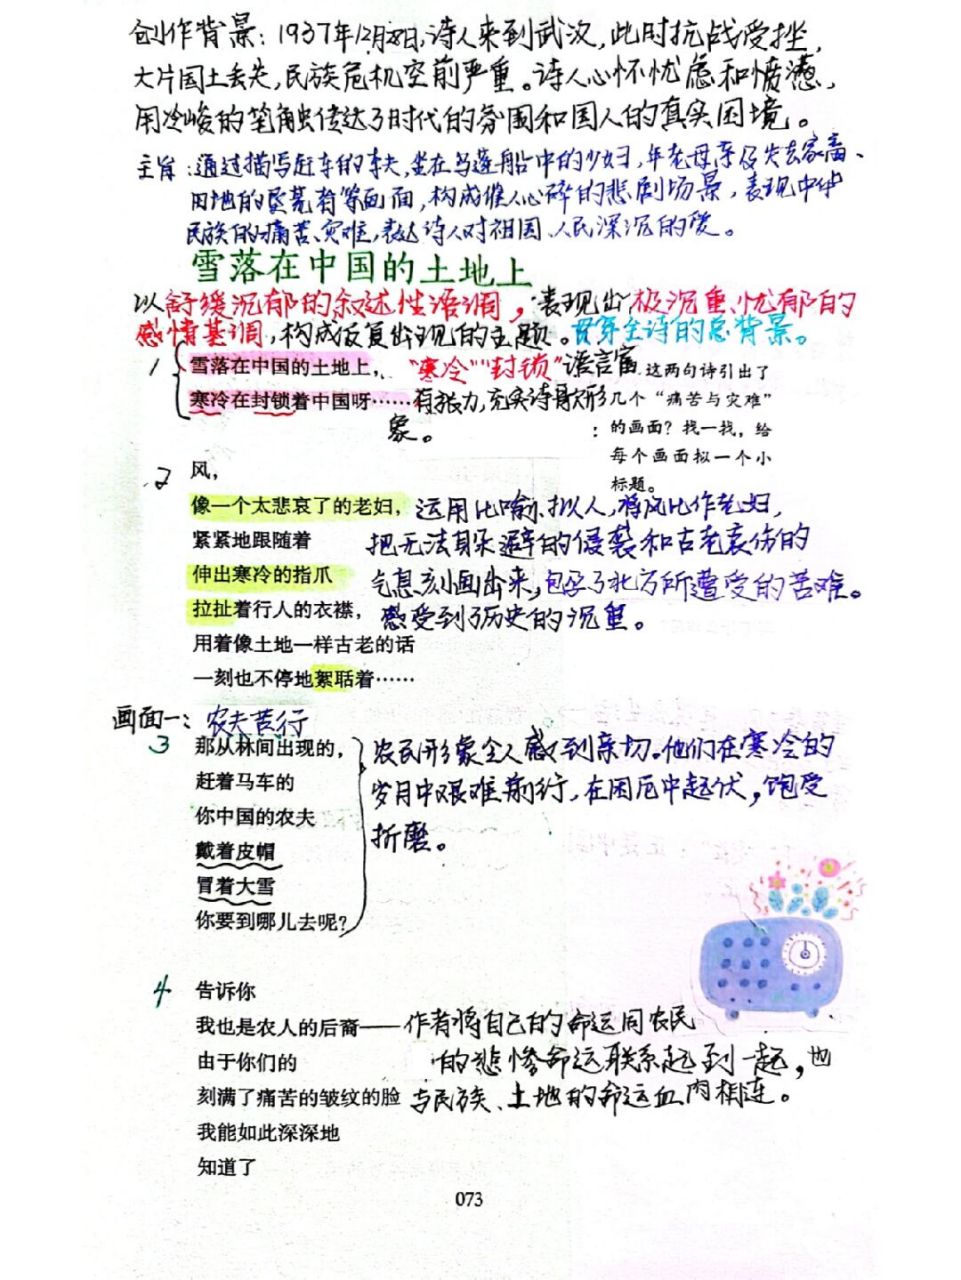 创作背景：1937年12月28日,诗人来到武汉,此时抗战受挫,
大片国土丢失,民族危机空前严重。诗人心怀忧虑和愤懑,
用冷峻的笔触传达了时代的氛围和国人的真实困境。
主旨：通过描写赶车的农夫,坐在乌篷船中的少妇,年老母亲及失去家畜、
田地的垦荒者等画面,构成催人心碎的悲剧场景,表现中华
民族的痛苦、灾难,表达诗人对祖国、人民深沉的爱。
雪落在中国的土地上
以舒缓沉郁的叙述性语调,表现出极沉重、忧郁的
感情基调,构成反复出现的主题。贯穿全诗的总背景。
1 雪落在中国的土地上， “寒冷”“封锁”语言富
寒冷在封锁着中国呀……有张力,充实诗骨形
象。
这两句诗引出了
几个“痛苦与灾难”
的画面？找一找，给
每个画面拟一个小
标题。
2 风，
像一个太悲哀了的老妇， 运用比喻、拟人,将风比作老妇,
紧紧地跟随着 把无法躲避的侵袭和古老哀伤的
伸出寒冷的指爪 气息刻画出来,包孕了北方所遭受的苦难。
拉扯着行人的衣襟， 感受到历史的沉重。
用着像土地一样古老的话
一刻也不停地絮聒着……
画面一：农夫苦行
3 那从林间出现的， 农民形象令人感到亲切。他们在寒冷的
赶着马车的 岁月中艰难前行,在困厄中起伏,饱受
你中国的农夫 折磨。
戴着皮帽
冒着大雪
你要到哪儿去呢？
4 告诉你
我也是农人的后裔——作者将自己的命运同农民
由于你们的 的悲惨命运联系到一起,也
刻满了痛苦的皱纹的脸 与民族、土地的命运血肉相连。
我能如此深深地
知道了
073